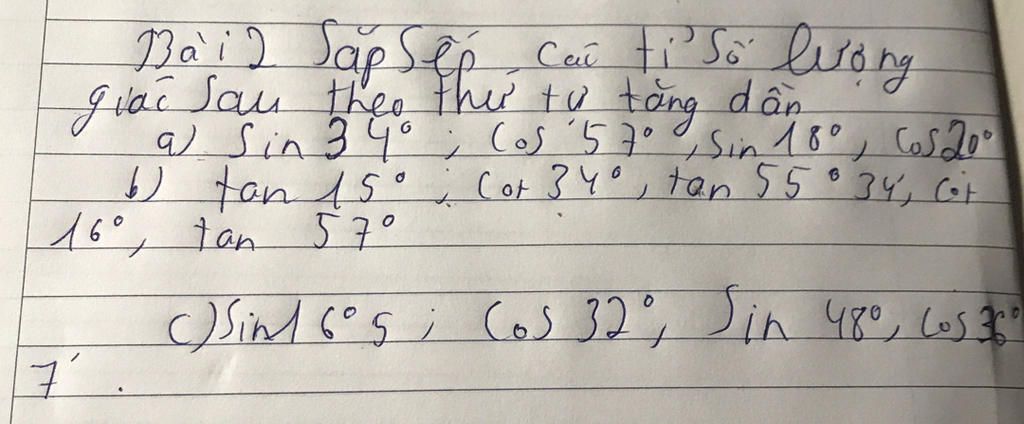 Bài 2 Sắp Sếp các tỉ số lượng
giác sau theo thứ tự tăng dần
a) Sin 34° ; Cos 57°, sin 18°, Cos 20°
b) tan 15° ; Cot 34°, tan 55° 34', Cot
16°, tan 57°
c) Sin 16° 5 ; Cos 32°, Sin 48°, Cos 36°
7'.